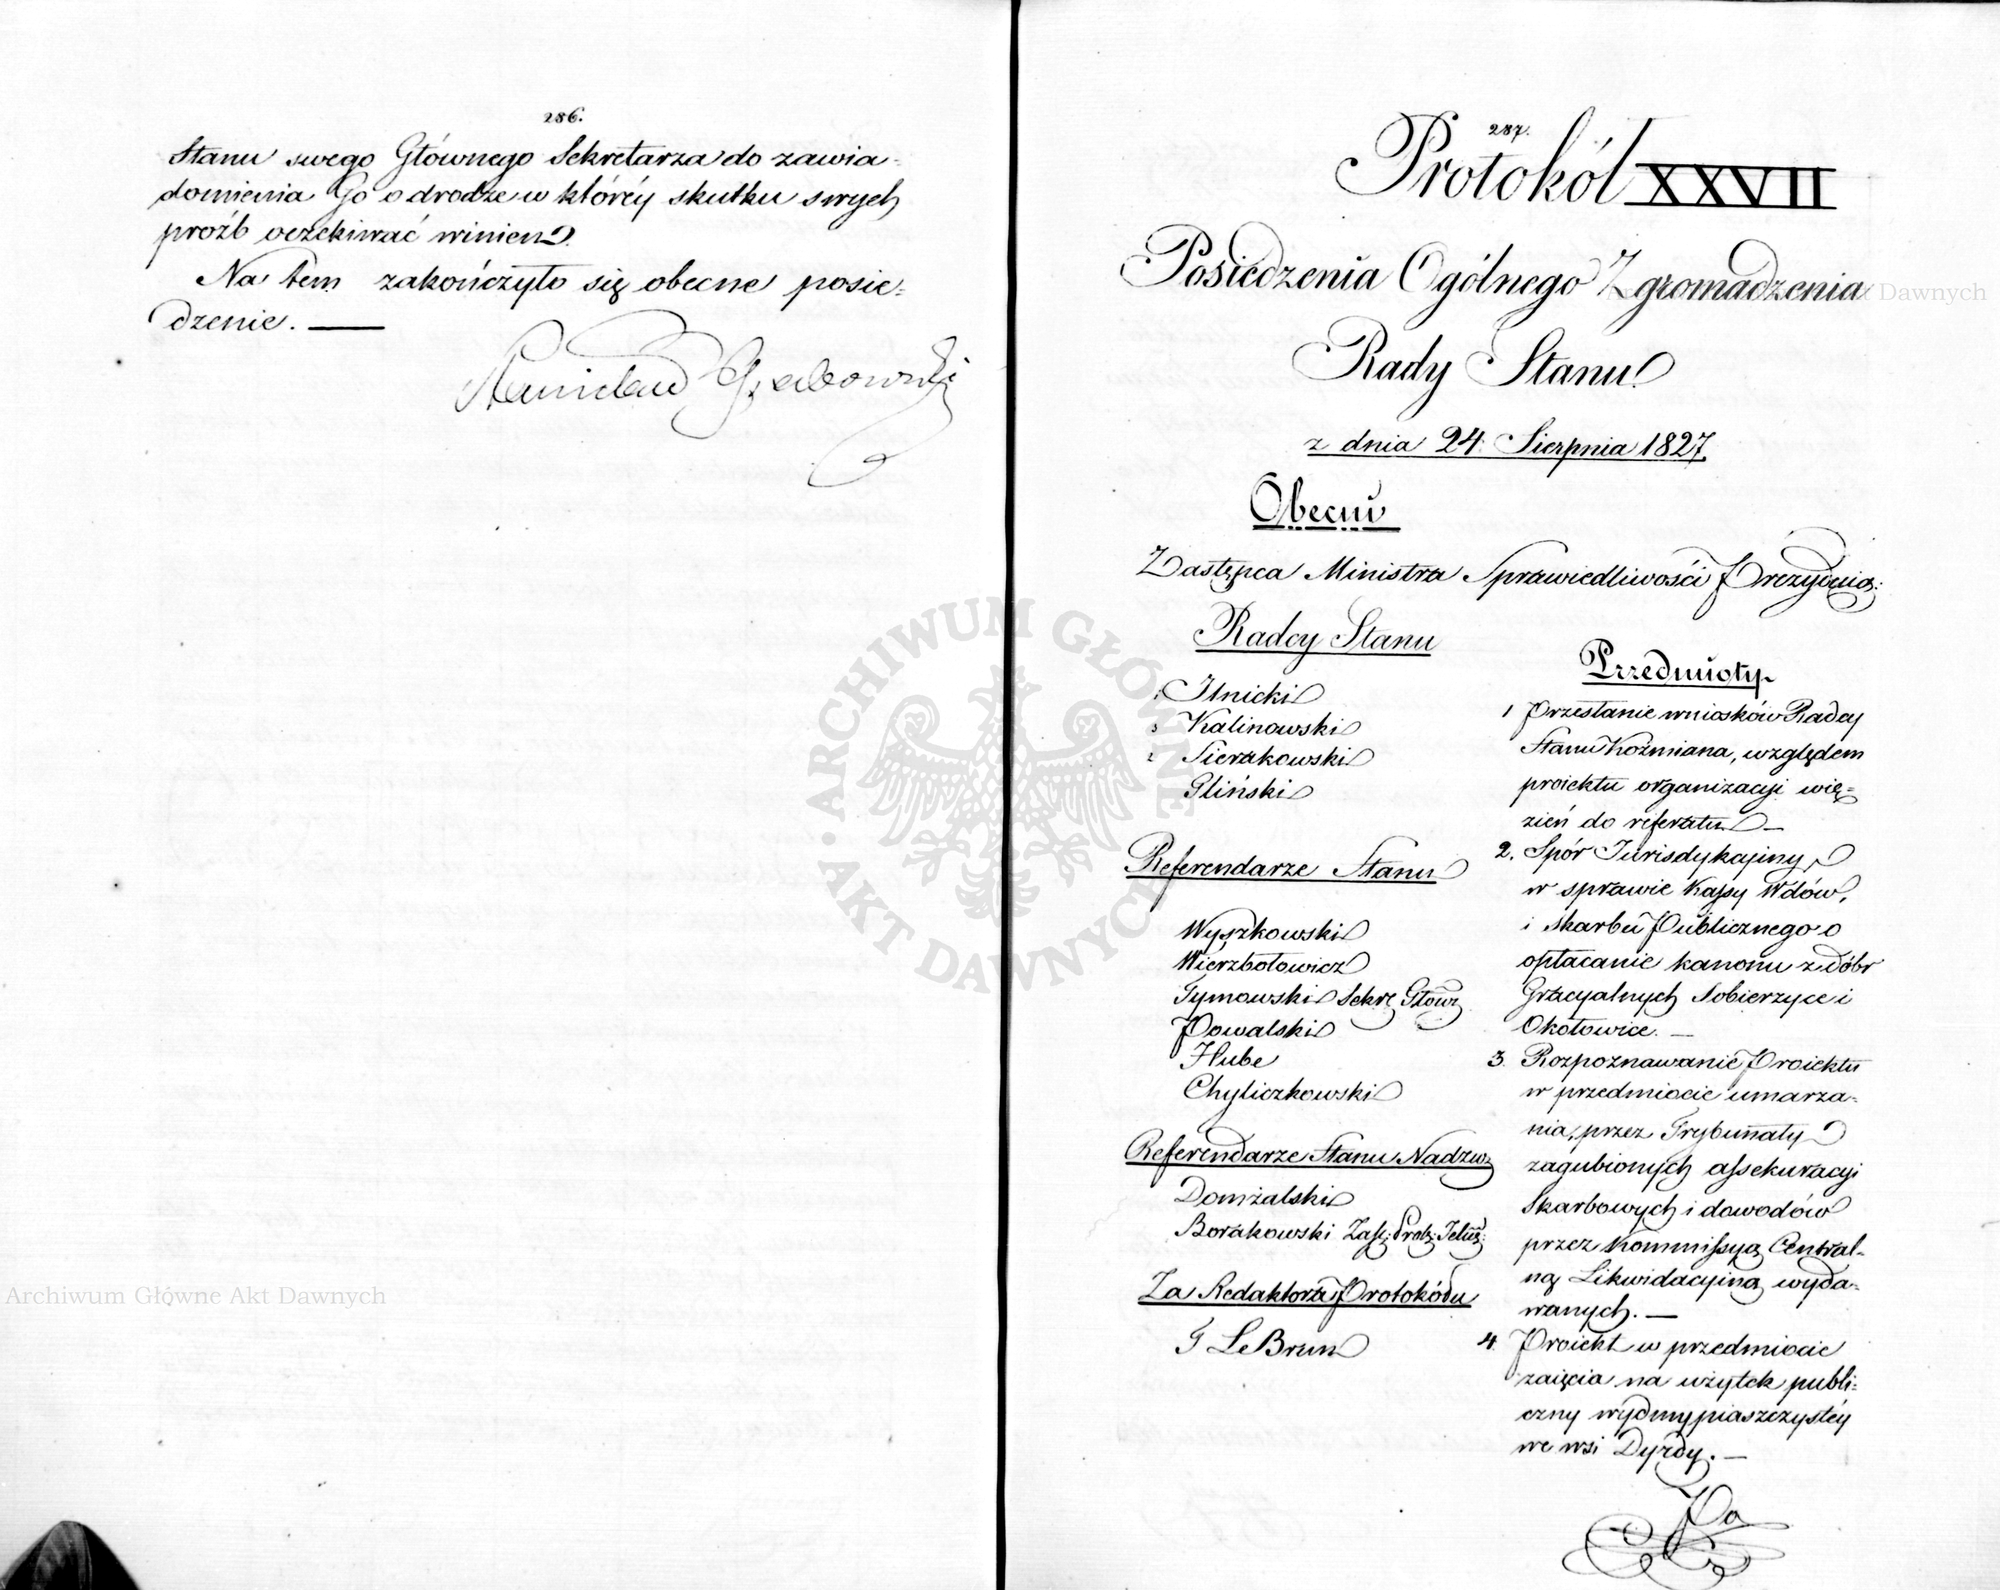 286.
Stanu swego Głównego Sekretarza do zawia-
domienia Go o drodze w któréy skutku swych
proźb oczekiwać winien.
Na tem zakończyło się obecne posie-
dzenie. —
Stanisław Grabowski
287.
Protokół XXVII
Posiedzenia Ogólnego Zgromadzenia
Rady Stanu
z dnia 24. Sierpnia 1827.
Obecni
Zastępca Ministra Sprawiedliwości Prezyduią:
Radcy Stanu
1 Ilnicki
3 Kalinowski
2 Sierakowski
Gliński
Referendarze Stanu
Wyszkowski
Wierzbołowicz
Tymowski Sekre Głów:
Powalski
Hube
Chyliczkowski
Referendarze Stanu Nadzw:
Domżalski
Borakowski
Za Redaktora Protokółu
T LeBrun
Przedmioty
1 Przesłanie wniosków Radcy
Stanu Koźmiana, względem
proiektu organizacyi wię=
zień do referatu. —
2. Spór Jurisdykcyiny
w sprawie Kassy Wdów,
i Skarbu Publicznego o
opłacanie kanonu z dóbr
Gracyalnych Sobierzyce i
Okołowice. —
3. Rozpoznawanie Proiektu
w przedmiocie umarza-
nia, przez Trybunały
zagubionych assekuracyi
Skarbowych i dowodów
przez Kommissyą Central-
ną Likwidacyiną wyda-
wanych. —
4. Proiekt w przedmiocie
zaięcia na użytek publi-
czny wydmy piaszczystéy
we wsi Dyrdy. —
Po
ARCHIWUM GŁÓWNE AKT DAWNYCH
Archiwum Główne Akt Dawnych
Dawnych